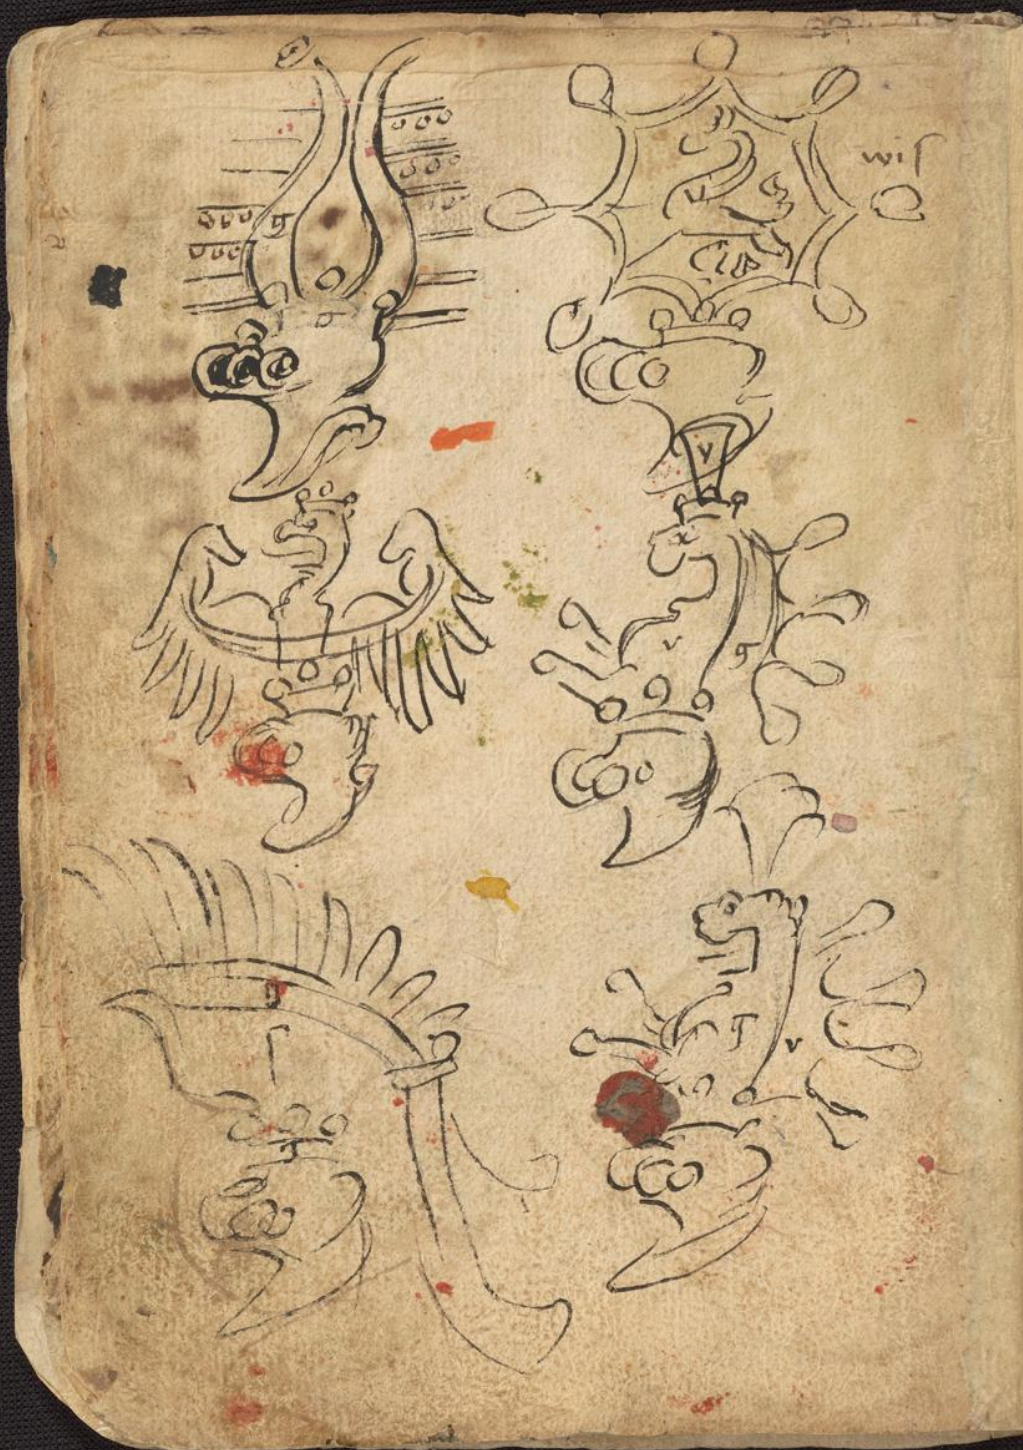 wiſ
g
v
v
v
g
g
v